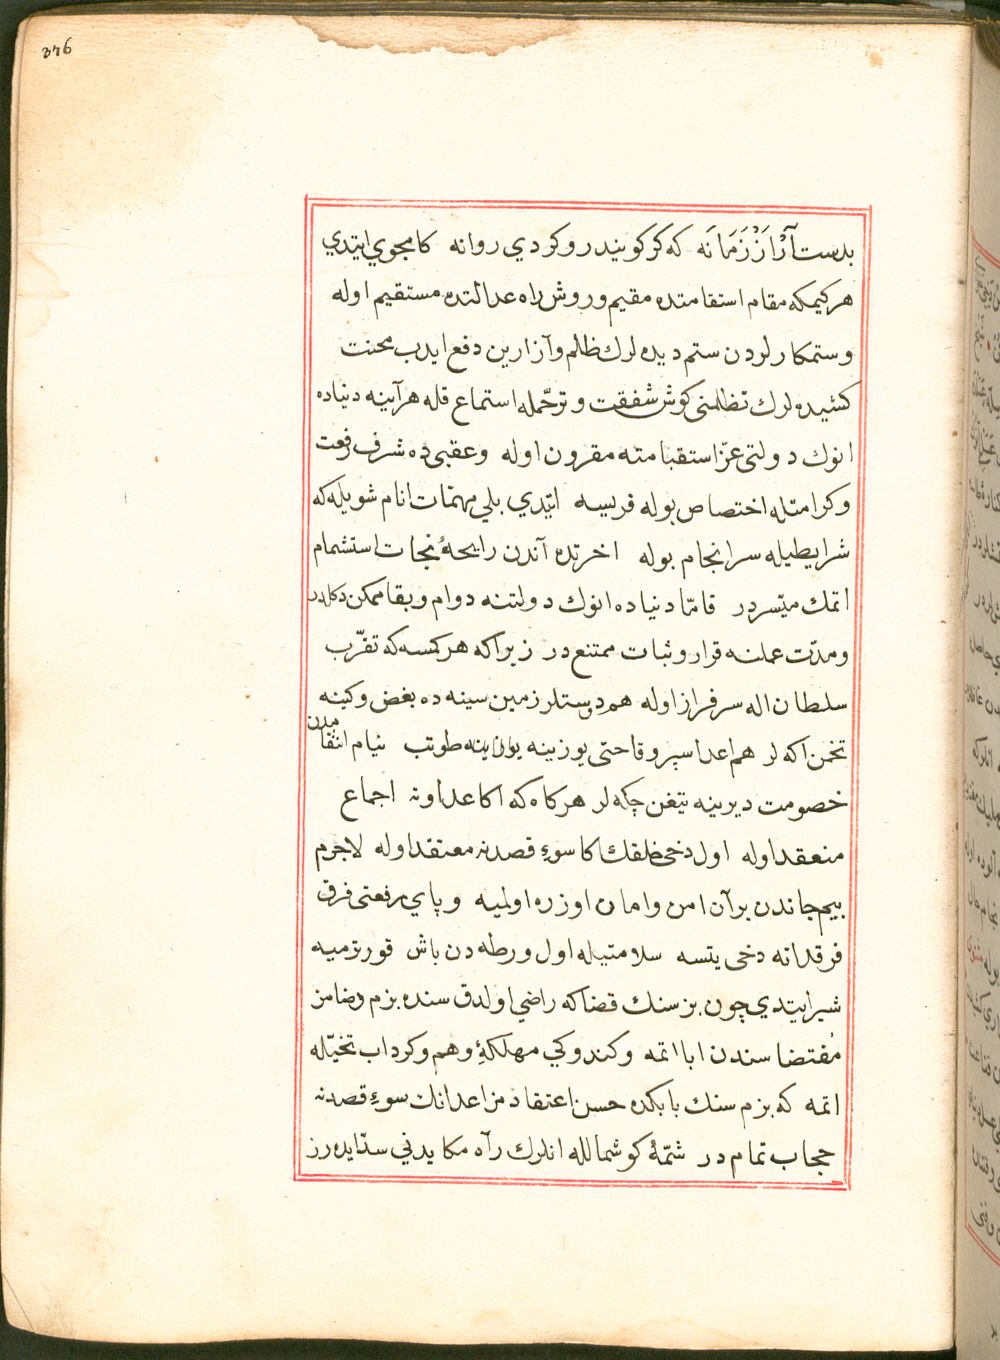 376
بدست آزَارْ زَمَانَه که کرکویند رو کردی روانه کامجوی ایتدی
هرکیمکه مقام استقامتده مقیم وروش راه عدالتده مستقیم اوله
وستمکارلردن ستم دیده لرك ظلم وآزارین دفع ایدب محنت
کشیده لرك تظلمنی کوش شفقت و ترحّمله استماع قله هرآینه دنیاده
انوك دولتی عزّ استقبامته مقرون اوله وعقبی ده شرف رفعت
وکرامتله اختصاص بوله فریسه ایتدي بلي مهمّات انام شویله که
شرایطیله سرانجام بوله اخرتده آندن رایحۀ نجات استشمام
اتمك میّسردر فامّا دنیاده انوك دولتنه دوام وبقا ممکن دکلدر
ومدّت عملنه قرار وثبات ممتنع در زیراکه هر کمسه که تقرّب
سلطان اله سرفراز اوله هم دوستلر زمین سینه ده بغض وکینه
تخمن اکه لر هم اعدا سپر وقاحتی یوزینه طوتب نیام انتقامدن
خصومت دیرینه تیغن چکه لر هرکاه که اکا عداوته اجماع
منعقد اوله اول دخی خلقك اکا سوءِ قصدنه معتقد اوله لاجرم
بیم جاندن برآن امن وامان اوزره اولمیه وپاي رفعتی فرق
فرقدانه دخی یتسه سلامتیله اول ورطه دن باش قورترمیه
شیر ایتدي چون بز سنك قضاکه راضي اولدق سنده بزم رضامز
مُقتضاسندن ابا اتمه وکندوکي مهلکۀ وهم وکرداب تخیّله
اتمه که بزم سنك بابکده حسن اعتقادمز اعدانك سوءِ قصدنه
حجاب تمام در شمّۀ کوشمالله انلرك راه مکایدني سدّ ایده رز